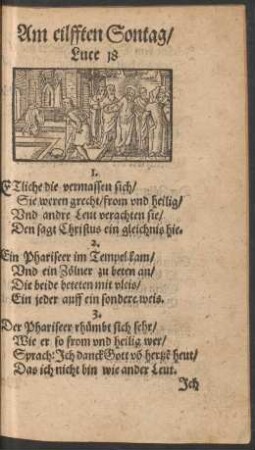 Am eilfften Sontag/
Luce 18
1.
ETliche die vermassen sich/
Sie weren grecht/from vnd heilig/
Vnd andre Leut verachten sie/
Den sagt Christus ein gleichnis hie.
2.
Ein Phariseer im Tempel kam/
Vnd ein Zölner zu beten an/
Die beide beteten mit vleis/
Ein jeder auff ein sondere weis.
3.
Der Phariseer rhümbt sich sehr/
Wie er so from vnd heilig wer/
Sprach: Ich danck Gott vō hertzē heut/
Das ich nicht bin wie ander Leut.
Ich